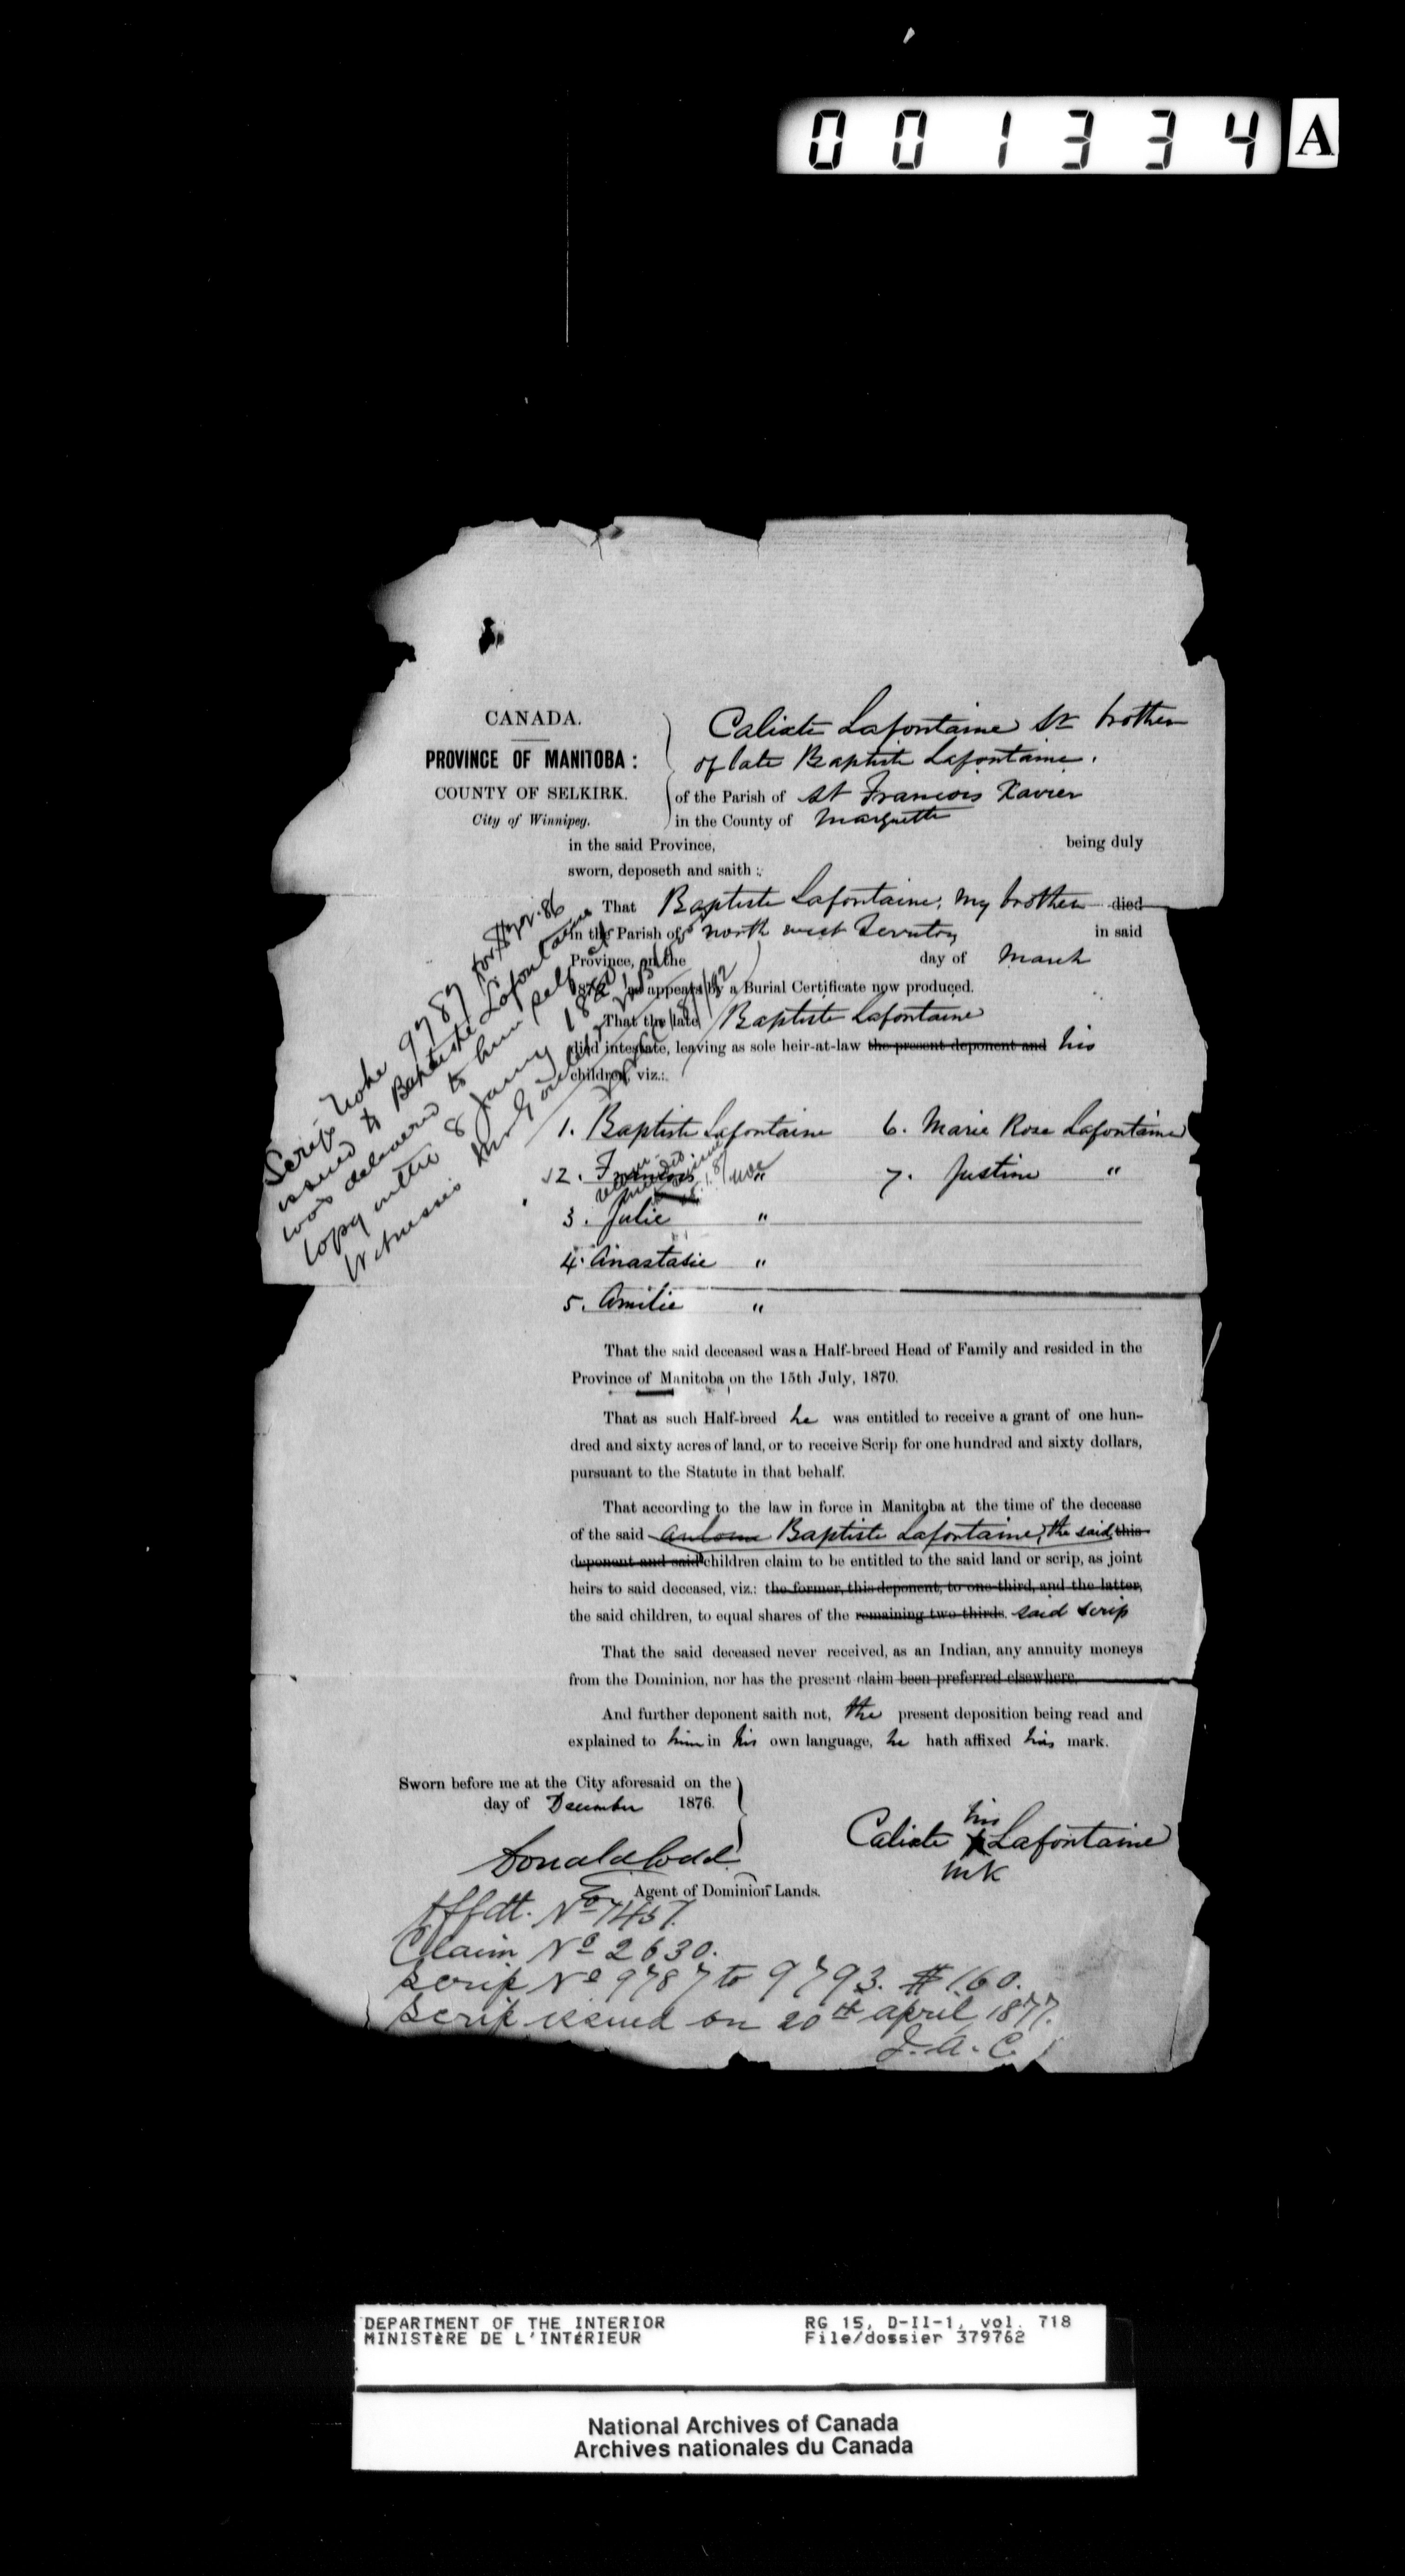 001334 A
CANADA.
PROVINCE OF MANITOBA:
COUNTY OF SELKIRK.
City of Winnipeg.
Calixte Lafontaine Sr brother
of late Baptiste Lafontaine.
of the Parish of St Francois Xavier
in the County of Marquette
in the said Province, being duly
sworn, deposeth and saith:
That Baptiste Lafontaine, my brother died
in the Parish of north west Territory in said
Province, on the day of March
187 as appears by a Burial Certificate now produced.
That the late Baptiste Lafontaine
died intestate, leaving as sole heir-at-law the present deponent and his
children, viz.:
Scrip note 9787 for $22.86
issued to Baptiste Lafontaine
was delivered to him self
1. Baptiste Lafontaine 6. Marie Rose Lafontaine
2. Francois " 7. Justine "
3. Julie "
4. Anastasie "
5. Amilie "
That the said deceased was a Half-breed Head of Family and resided in the
Province of Manitoba on the 15th July, 1870.
That as such Half-breed he was entitled to receive a grant of one hun-
dred and sixty acres of land, or to receive Scrip for one hundred and sixty dollars,
pursuant to the Statute in that behalf.
That according to the law in force in Manitoba at the time of the decease
of the said Baptiste Lafontaine, the said this
deponent and said children claim to be entitled to the said land or scrip, as joint
heirs to said deceased, viz.: the former, this deponent, to one-third, and the latter,
the said children, to equal shares of the remaining two-thirds. said scrip
That the said deceased never received, as an Indian, any annuity moneys
from the Dominion, nor has the present claim been preferred elsewhere.
And further deponent saith not, the present deposition being read and
explained to him in his own language, he hath affixed his mark.
Sworn before me at the City aforesaid on the
day of December 1876.
his
Calixte X Lafontaine
mk
Donald Codd
Agent of Dominion Lands.
Affdt. No 7457.
Claim No 2630.
Scrip No 9787 to 9793. $160.
Scrip issued on 20th april 1877.
J. A. C.
DEPARTMENT OF THE INTERIOR RG 15, D-II-1, vol. 718
MINISTÈRE DE L'INTÉRIEUR File/dossier 379762
National Archives of Canada
Archives nationales du Canada